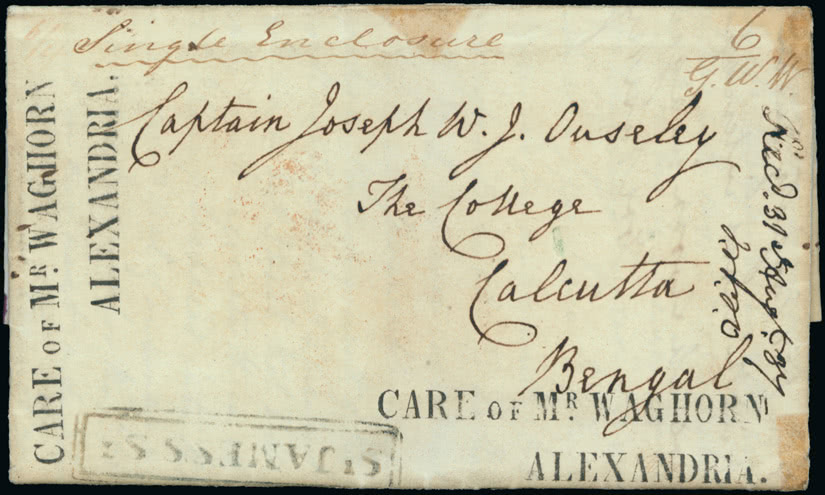 Single Enclosure
6
G. W. W.
Captain Joseph W. J. Ouseley
The College
Calcutta
Bengal
CARE OF MR WAGHORN
ALEXANDRIA.
CARE OF MR WAGHORN
ALEXANDRIA.
Recd. 31
ST JAMES'S ST